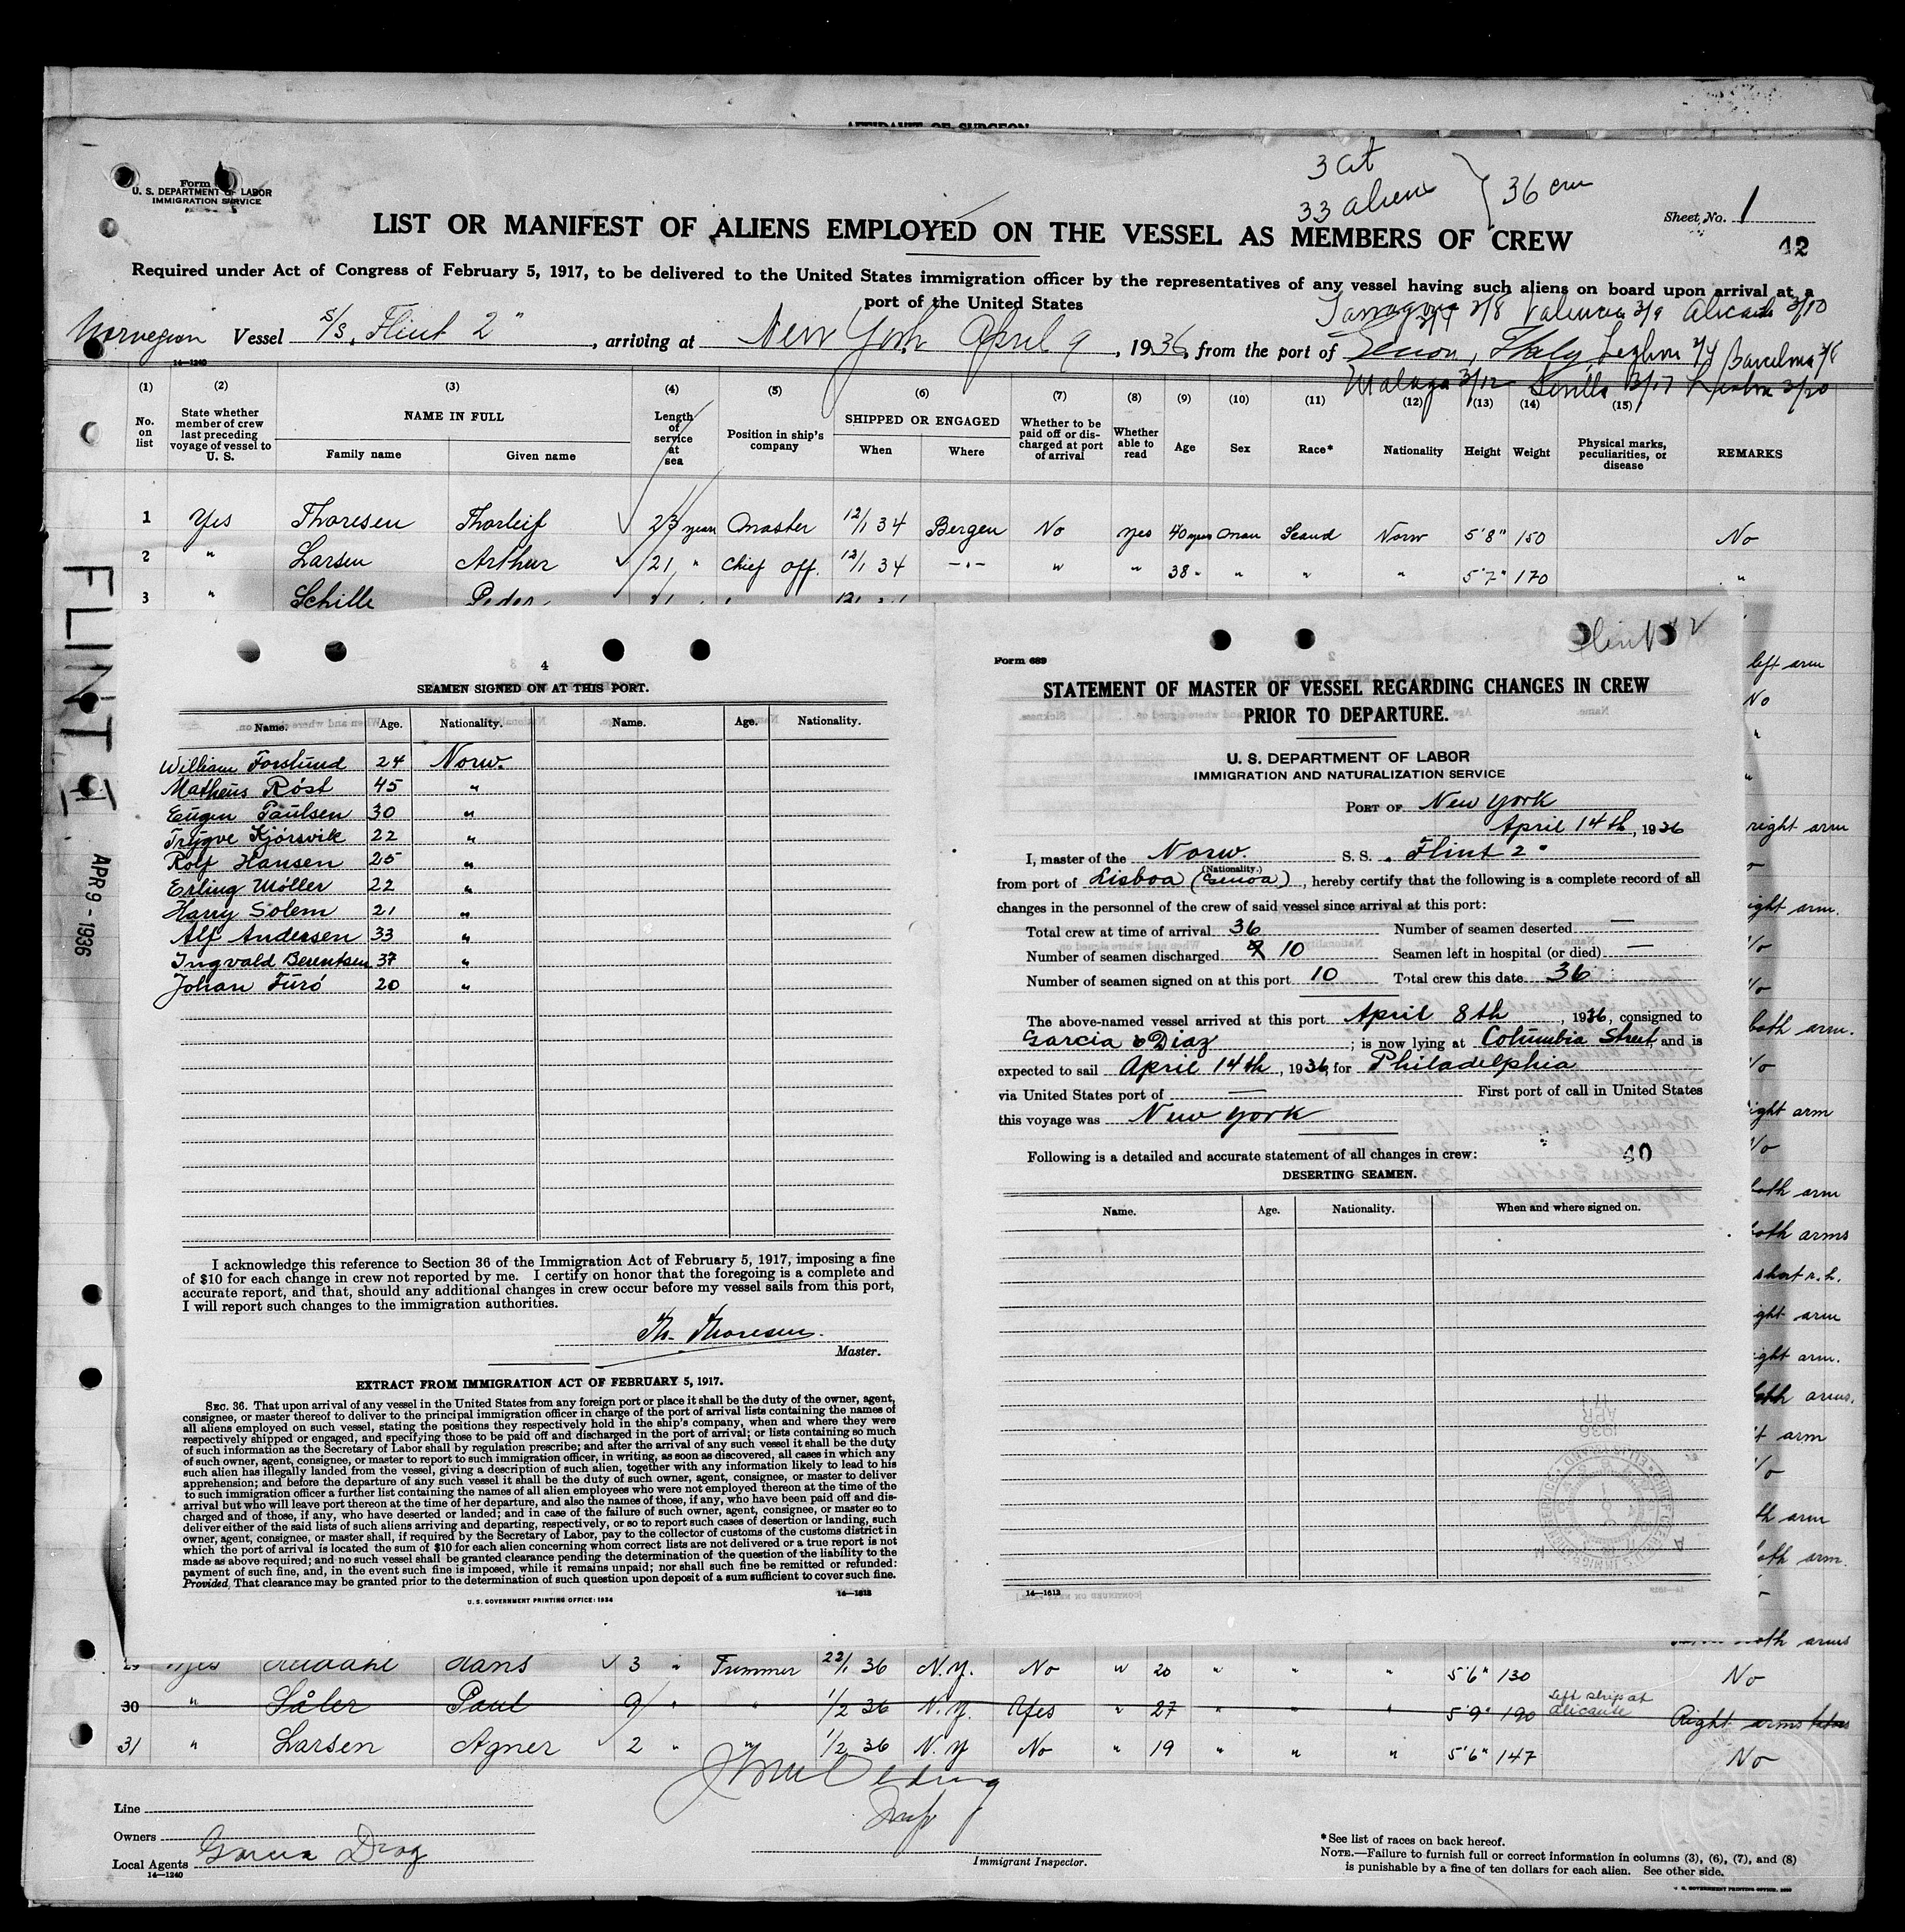 AFFIDAVIT OF SURGEON
3 cit
33 alien } 36 crew
Form
U. S. DEPARTMENT OF LABOR
IMMIGRATION SERVICE
Sheet No. 1
42
LIST OR MANIFEST OF ALIENS EMPLOYED ON THE VESSEL AS MEMBERS OF CREW
Required under Act of Congress of February 5, 1917, to be delivered to the United States immigration officer by the representatives of any vessel having such aliens on board upon arrival at a
port of the United States
Tarragona 3/8 Valencia 3/9 Alicante 3/10
Norwegian Vessel S/S. Flint 2" , arriving at New York April 9, 1936, from the port of Genoa, Italy, Leghorn Barcelona
Malaga 3/12 Sevilla 3/17 Lisboa 3/20
14—1240
(1) (2) (3) (4) (5) (6) (7) (8) (9) (10) (11) (12) (13) (14) (15)
No. on list State whether member of crew last preceding voyage of vessel to U. S. NAME IN FULL Family name Given name Length of service at sea Position in ship's company SHIPPED OR ENGAGED When Where Whether to be paid off or discharged at port of arrival Whether able to read Age Sex Race* Nationality Height Weight Physical marks, peculiarities, or disease REMARKS
1 Yes Thoresen Thorleif 23 years Master 12/1 34 Bergen No yes 40 years man Scand Norw 5'8" 150 No
2 " Larsen Arthur 21 " Chief Off. 12/1 34 -"- " " 38 " " " " 5'7" 170 "
3 " Schille Peder
FLINT II
APR 9 - 1936
4
SEAMEN SIGNED ON AT THIS PORT.
Name. Age. Nationality. Name. Age. Nationality.
William Forslund 24 Norw.
Matheus Röst 45 "
Eugen Paulsen 30 "
Trygve Kjörsvik 22 "
Rolf Hansen 25 "
Erling Möller 22 "
Harry Solem 21 "
Alf Andersen 33 "
Ingvald Berentsen 37 "
Johan Furö 20 "
I acknowledge this reference to Section 36 of the Immigration Act of February 5, 1917, imposing a fine
of $10 for each change in crew not reported by me. I certify on honor that the foregoing is a complete and
accurate report, and that, should any additional changes in crew occur before my vessel sails from this port,
I will report such changes to the immigration authorities.
Th. Thoresen.
Master.
EXTRACT FROM IMMIGRATION ACT OF FEBRUARY 5, 1917.
SEC. 36. That upon arrival of any vessel in the United States from any foreign port or place it shall be the duty of the owner, agent,
consignee, or master thereof to deliver to the principal immigration officer in charge of the port of arrival lists containing the names of
all aliens employed on such vessel, stating the positions they respectively hold in the ship's company, when and where they were
respectively shipped or engaged, and specifying those to be paid off and discharged in the port of arrival; or lists containing so much
of such information as the Secretary of Labor shall by regulation prescribe; and after the arrival of any such vessel it shall be the duty
of such owner, agent, consignee, or master to report to such immigration officer, in writing, as soon as discovered, all cases in which any
such alien has illegally landed from the vessel, giving a description of such alien, together with any information likely to lead to his
apprehension; and before the departure of any such vessel it shall be the duty of such owner, agent, consignee, or master to deliver
to such immigration officer a further list containing the names of all alien employees who were not employed thereon at the time of the
arrival but who will leave port thereon at the time of her departure, and also the names of those, if any, who have been paid off and dis-
charged and of those, if any, who have deserted or landed; and in case of the failure of such owner, agent, consignee, or master so to
deliver either of the said lists of such aliens arriving and departing, respectively, or so to report such cases of desertion or landing, such
owner, agent, consignee, or master shall, if required by the Secretary of Labor, pay to the collector of customs of the customs district in
which the port of arrival is located the sum of $10 for each alien concerning whom correct lists are not delivered or a true report is not
made as above required; and no such vessel shall be granted clearance pending the determination of the question of the liability to the
payment of such fine, and, in the event such fine is imposed, while it remains unpaid; nor shall such fine be remitted or refunded:
Provided, That clearance may be granted prior to the determination of such question upon deposit of a sum sufficient to cover such fine.
14—1613
U. S. GOVERNMENT PRINTING OFFICE: 1934
Flint # 2
Form 689
STATEMENT OF MASTER OF VESSEL REGARDING CHANGES IN CREW
PRIOR TO DEPARTURE.
U. S. DEPARTMENT OF LABOR
IMMIGRATION AND NATURALIZATION SERVICE
PORT OF New York
April 14th, 1936
I, master of the Norw. S. S. "Flint 2"
(Nationality.)
from port of Lisboa (Genoa), hereby certify that the following is a complete record of all
changes in the personnel of the crew of said vessel since arrival at this port:
Total crew at time of arrival 36 Number of seamen deserted —
Number of seamen discharged 9 10 Seamen left in hospital (or died) —
Number of seamen signed on at this port 10 Total crew this date 36
The above-named vessel arrived at this port April 8th, 1936, consigned to
Garcia & Diaz; is now lying at Columbia Street and is
expected to sail April 14th, 1936, for Philadelphia
via United States port of — First port of call in United States
this voyage was New York
Following is a detailed and accurate statement of all changes in crew:
40
DESERTING SEAMEN.
Name. Age. Nationality. When and where signed on.
14—1613
left arm
No
"
"
right arm
right arm.
No
No
both arm.
No
right arm
No
both arm
both arms
short r. h.
right arm
right arm.
both arms.
arm
No
both arm
both arm.
both arms
29 Yes Hans 3 " Trimmer 22/1 36 N.Y. No " 20 " " " 5'6" 130 No
30 " Såler Paul 9 " " 1/2 36 N.Y. Yes " 27 " " " 5'9" 190 Left ship at Alicante Right arms
31 " Larsen Agner 2 " " 1/2 36 N.Y No " 19 " " " 5'6" 147 No
Insp
Line
Owners
Local Agents Garcia Diaz
14—1240
Immigrant Inspector.
*See list of races on back hereof.
NOTE.—Failure to furnish full or correct information in columns (3), (6), (7), and (8)
is punishable by a fine of ten dollars for each alien. See other side.